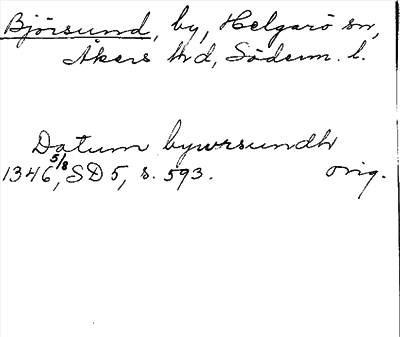 Björsund, by, Helgarö sn,
Åkers hd, Söderm. l.
Datum byursundh
1346 5/8, SD 5, s. 593. orig.